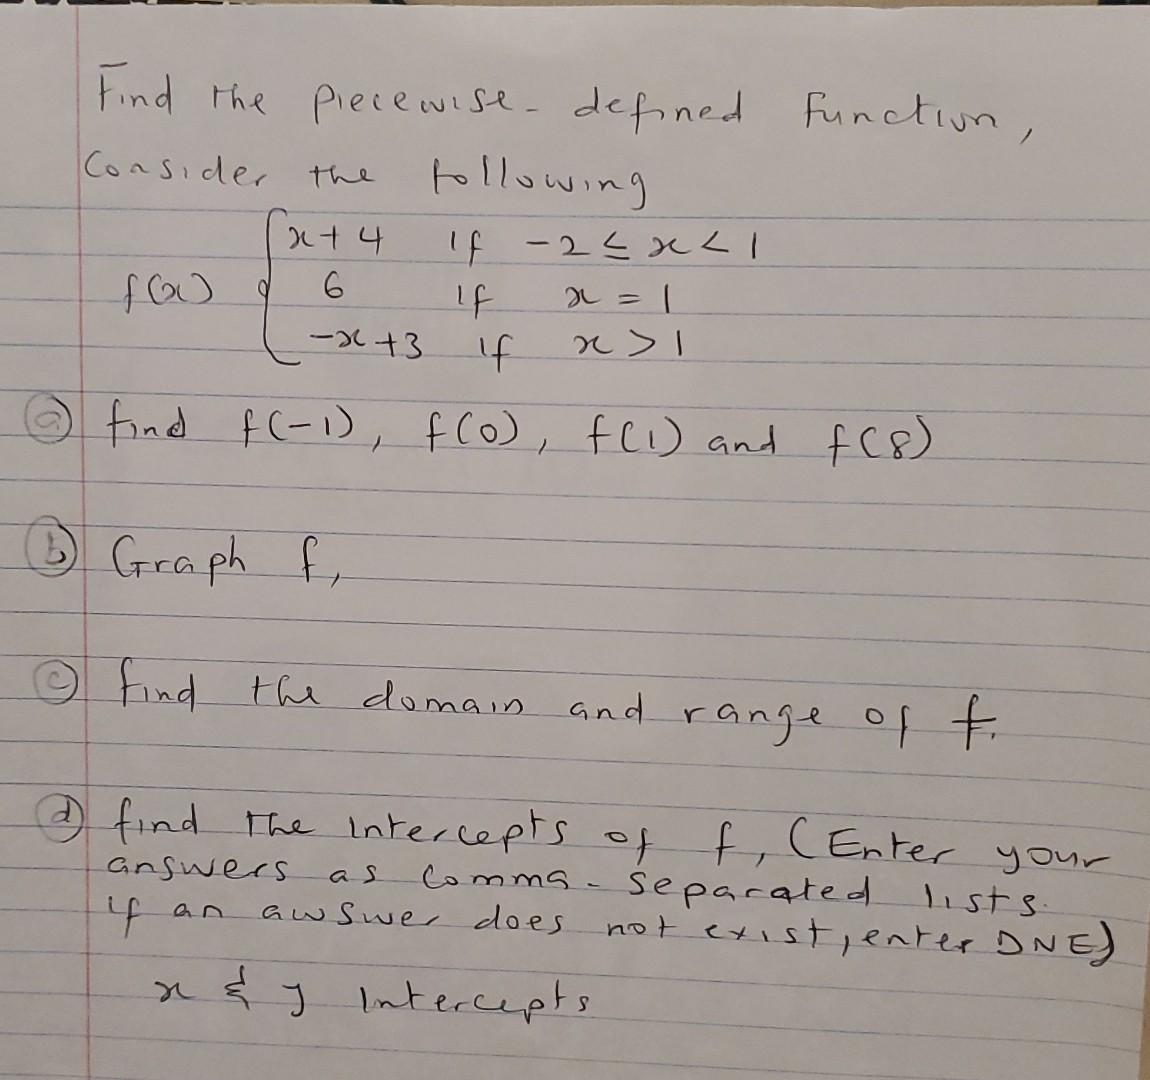 Find the piecewise-defined function,
Consider the following
f(x) { x+4 if -2 ≤ x < 1
6 if x = 1
-x+3 if x > 1
(a) find f(-1), f(0), f(1) and f(8)
(b) Graph f,
(c) find the domain and range of f.
(d) find the intercepts of f, (Enter your
answers as comma-separated lists.
if an awswer does not exist, enter DNE)
x & y Intercepts